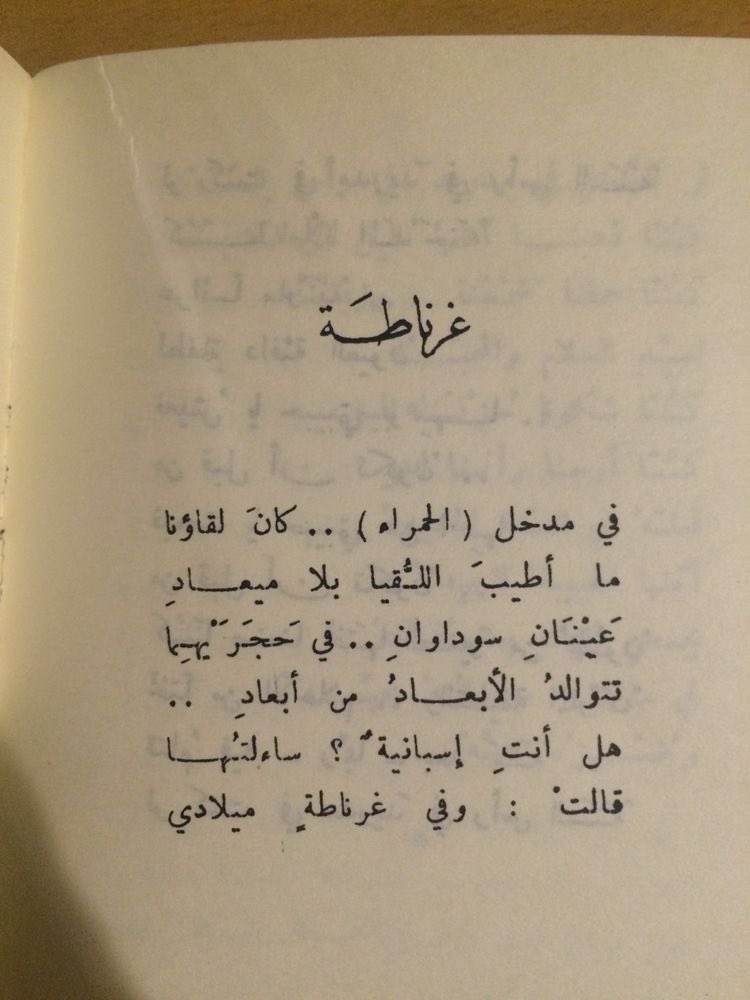 غرناطَة
في مدخل ( الحمراء ) .. كانَ لقاؤنا
ما أطيبَ اللُّقيا بلا ميعادِ
عَيْنَانِ سوداوانِ .. في حَجَرَيْهِما
تتوالدُ الأبعادُ من أبعادِ ..
هل أنتِ إسبانيةٌ ؟ ساءلتُها
قالتْ : وفي غرناطةٍ ميلادي